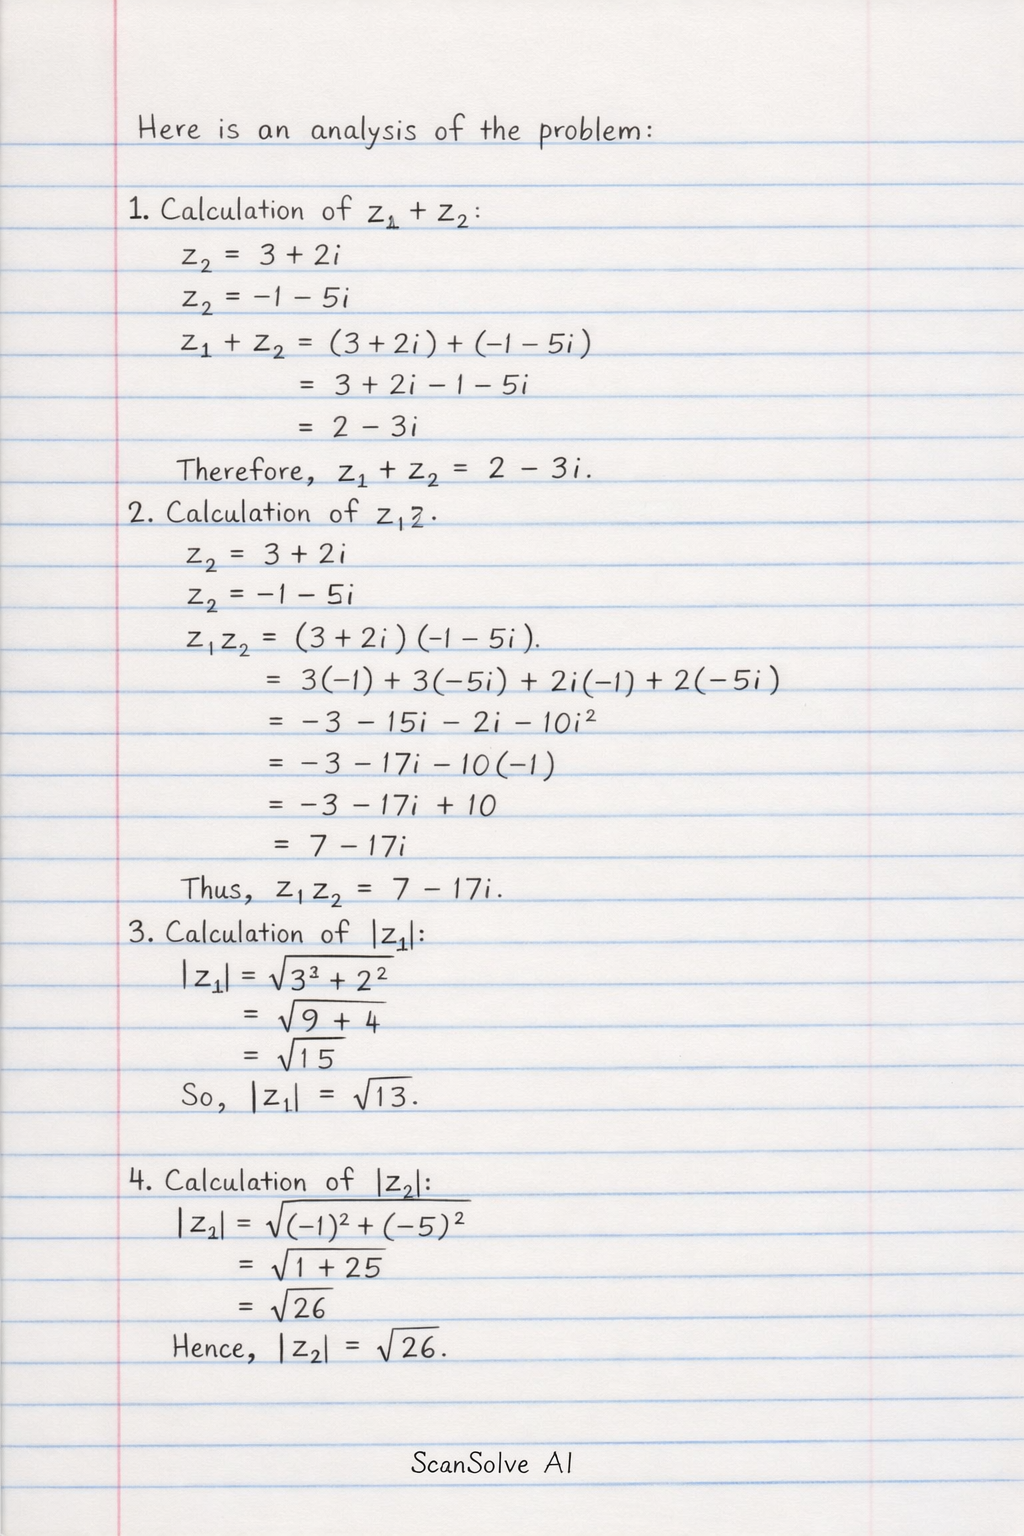 Here is an analysis of the problem:
1. Calculation of z₁ + z₂:
z₂ = 3 + 2i
z₂ = −1 − 5i
z₁ + z₂ = (3 + 2i) + (−1 − 5i)
= 3 + 2i − 1 − 5i
= 2 − 3i
Therefore, z₁ + z₂ = 2 − 3i.
2. Calculation of z₁2.
z₂ = 3 + 2i
z₂ = −1 − 5i
z₁z₂ = (3 + 2i)(−1 − 5i).
= 3(−1) + 3(−5i) + 2i(−1) + 2(−5i)
= −3 − 15i − 2i − 10i²
= −3 − 17i − 10(−1)
= −3 − 17i + 10
= 7 − 17i
Thus, z₁z₂ = 7 − 17i.
3. Calculation of |z₁|:
|z₁| = √3³ + 2²
= √9 + 4
= √15
So, |z₁| = √13.
4. Calculation of |z₂|:
|z₂| = √(−1)² + (−5)²
= √1 + 25
= √26
Hence, |z₂| = √26.
ScanSolve AI